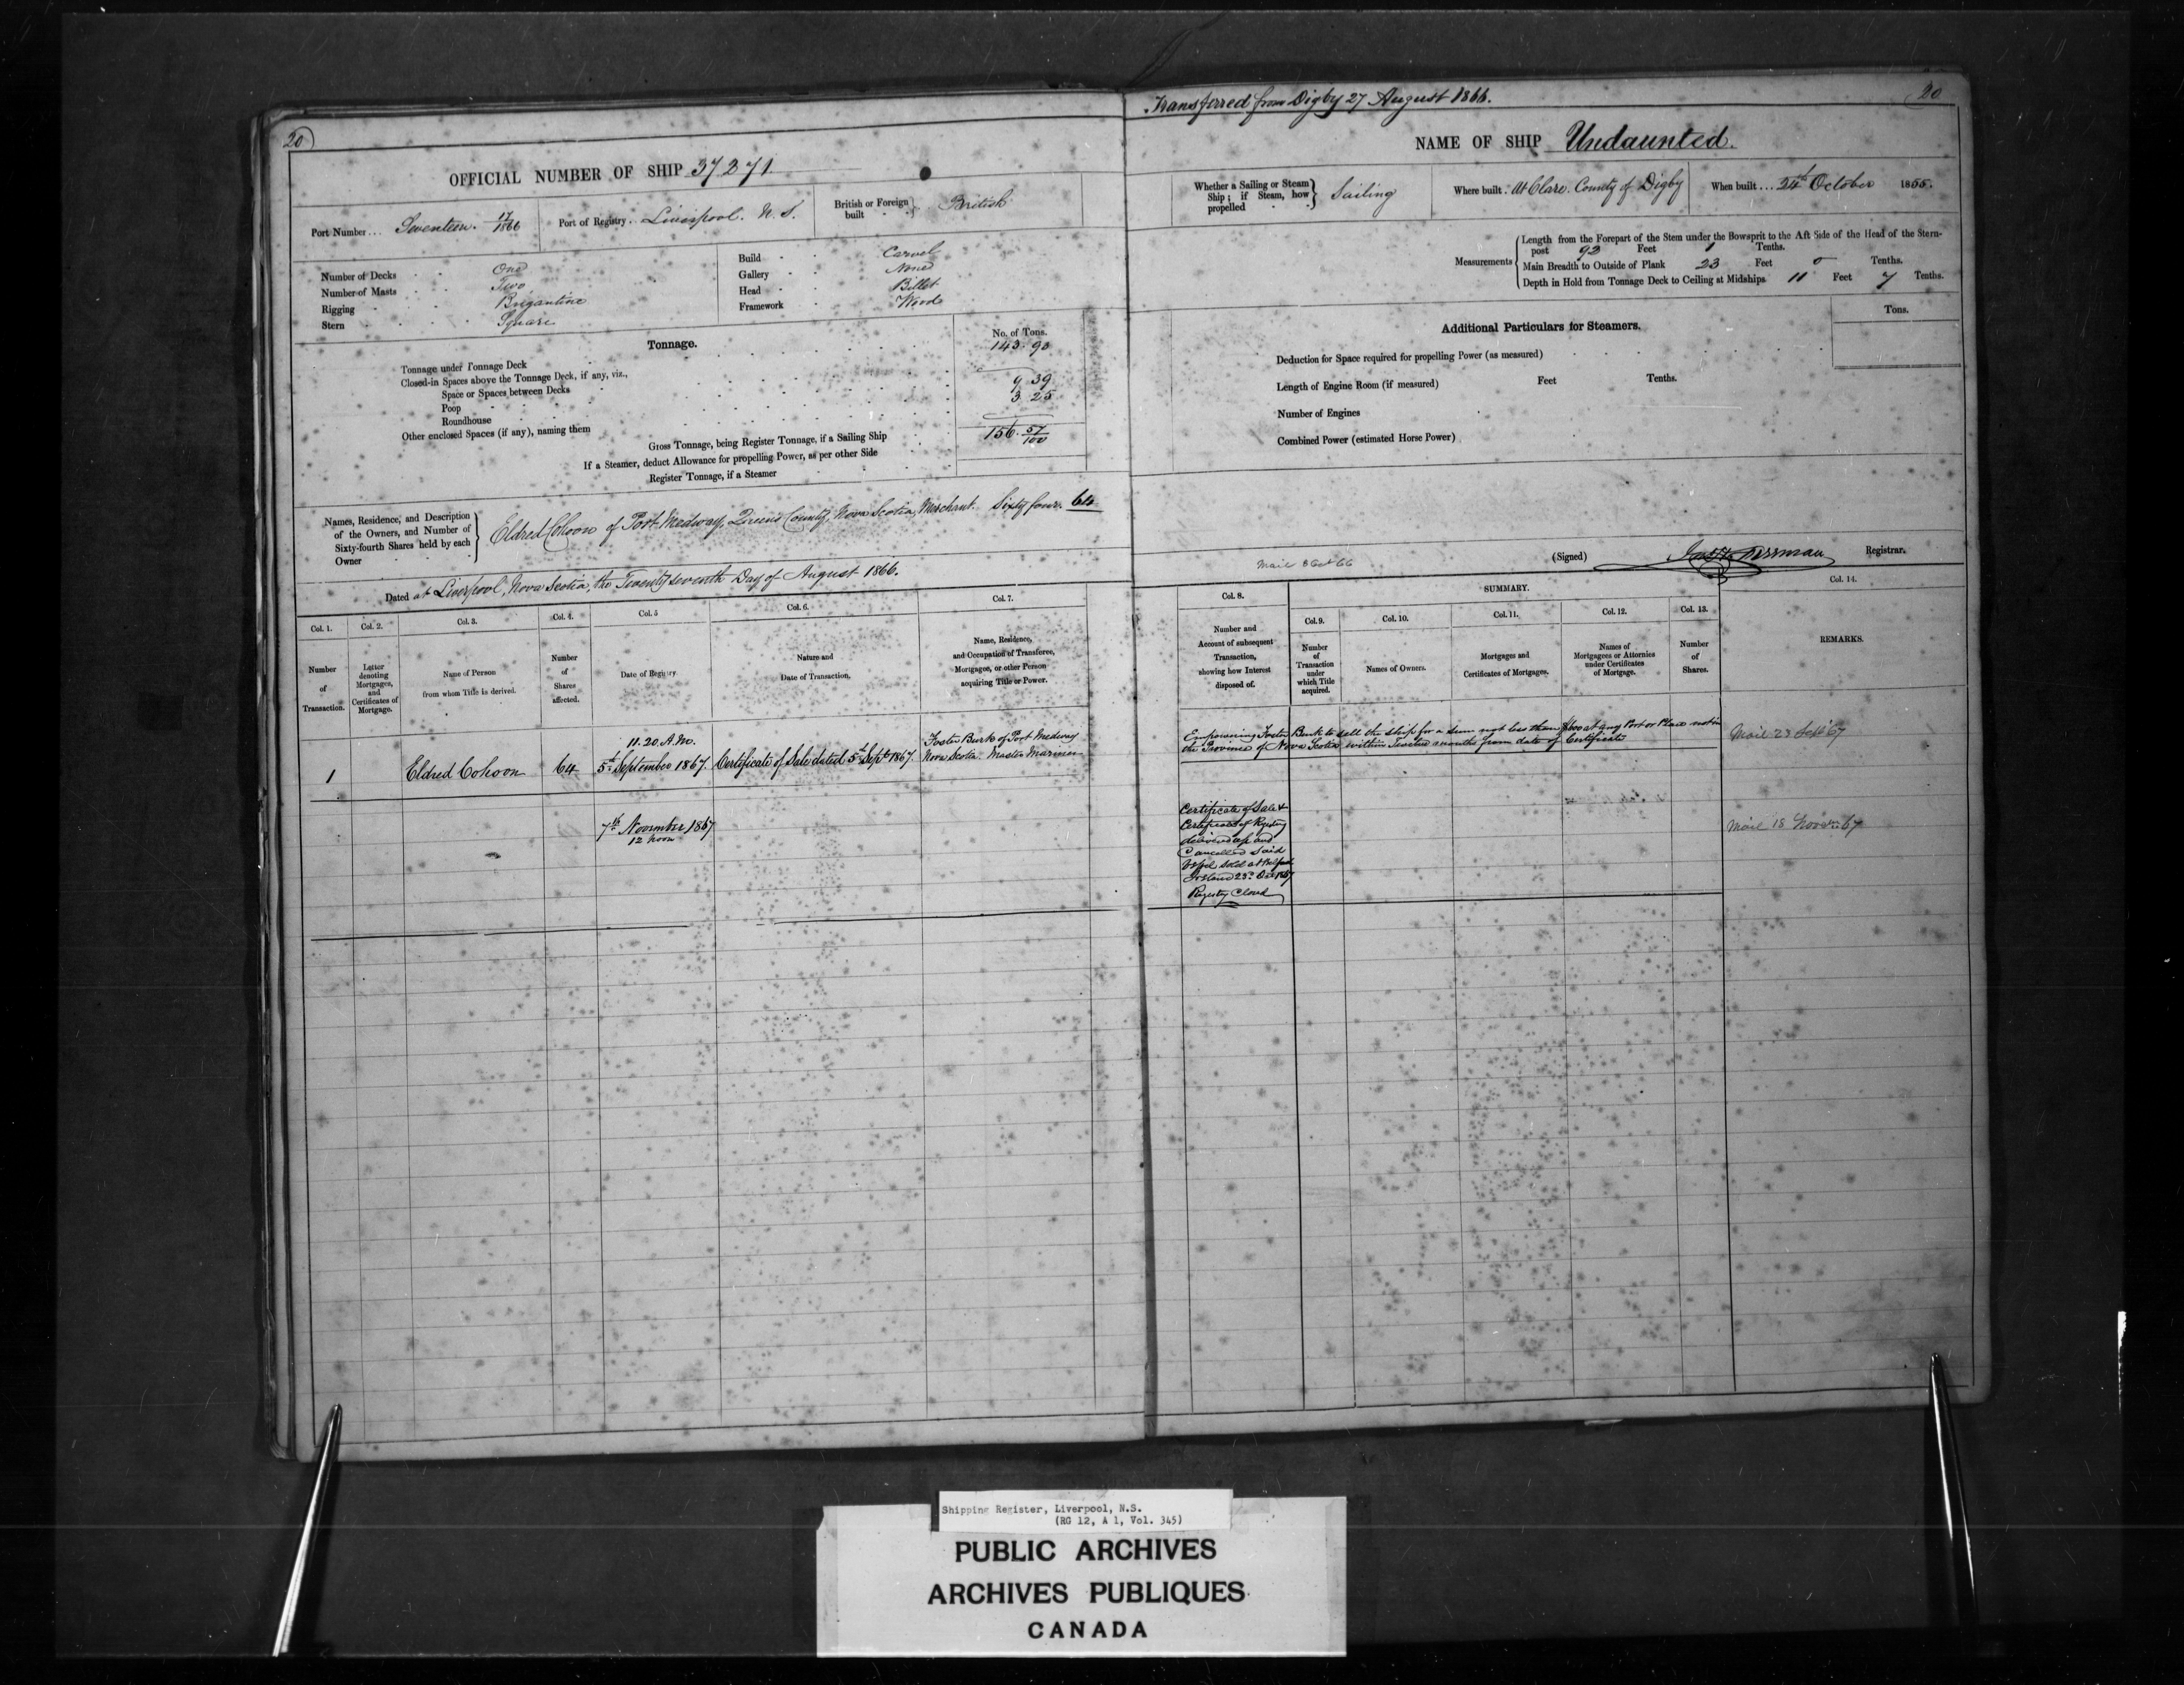 20
OFFICIAL NUMBER OF SHIP 37271
Port Number ... Seventeen 17/1866
Port of Registry Liverpool. N. S.
British or Foreign built British
Number of Decks One
Number of Masts Two
Rigging Brigantine
Stern Square
Build Carvel
Gallery None
Head Billet
Framework Wood
Tonnage.
No. of Tons.
Tonnage under Tonnage Deck 143 93
Closed-in Spaces above the Tonnage Deck, if any, viz.,
Space or Spaces between Decks
Poop 9 39
Roundhouse 3 25
Other enclosed Spaces (if any), naming them
Gross Tonnage, being Register Tonnage, if a Sailing Ship 156. 57/100
If a Steamer, deduct Allowance for propelling Power, as per other Side
Register Tonnage, if a Steamer
Names, Residence, and Description of the Owners, and Number of Sixty-fourth Shares held by each Owner
Eldred Cohoon of Port Medway, Queens County, Nova Scotia, Merchant. Sixty four. 64
Dated at Liverpool, Nova Scotia, the Twenty seventh Day of August 1866.
Col. 1.
Number of Transaction.
Col. 2.
Letter denoting Mortgages, and Certificates of Mortgage.
Col. 3.
Name of Person from whom Title is derived.
Col. 4.
Number of Shares affected.
Col. 5
Date of Registry
Col. 6.
Nature and Date of Transaction,
Col. 7.
Name, Residence, and Occupation of Transferee, Mortgagee, or other Person acquiring Title or Power.
1
Eldred Cohoon
64
11.20. A.M.
5th September 1867.
Certificate of Sale dated 5th Sept 1867.
Foster Burk of Port Medway
Nova Scotia. Master Mariner
7th November 1867
12 noon
Transferred from Digby 27 August 1866.
20
NAME OF SHIP Undaunted.
Whether a Sailing or Steam Ship; if Steam, how propelled Sailing
Where built. At Clare. County of Digby
When built ... 24th October 1855.
Measurements
Length from the Forepart of the Stem under the Bowsprit to the Aft Side of the Head of the Stern-
post 92 Feet 1 Tenths.
Main Breadth to Outside of Plank 23 Feet 0 Tenths.
Depth in Hold from Tonnage Deck to Ceiling at Midships 11 Feet 7 Tenths.
Additional Particulars for Steamers.
Tons.
Deduction for Space required for propelling Power (as measured)
Length of Engine Room (if measured) Feet Tenths.
Number of Engines
Combined Power (estimated Horse Power)
Mail 8 Oct 66
(Signed) Registrar.
Col. 8.
Number and Account of subsequent Transaction, showing how Interest disposed of.
SUMMARY.
Col. 9.
Number of Transaction under which Title acquired.
Col. 10.
Names of Owners.
Col. 11.
Mortgages and Certificates of Mortgages.
Col. 12.
Names of Mortgagees or Attornies under Certificates of Mortgage.
Col. 13.
Number of Shares.
Col. 14.
REMARKS.
Empowering Foster Burk to sell the ship for a sum not less than at any Port or Place not in
the Province of Nova Scotia within Twelve months from date of Certificate
Mail 23 Sept 67
Certificate of Sale &
Certificate of Registry
delivered up and
Cancelled Said
Vessel Sold at Belfast
Ireland 23rd Oct 1867
Registry Closed
Mail 18 Novem 67
Shipping Register, Liverpool, N.S.
(RG 12, A 1, Vol. 345)
PUBLIC ARCHIVES
ARCHIVES PUBLIQUES
CANADA